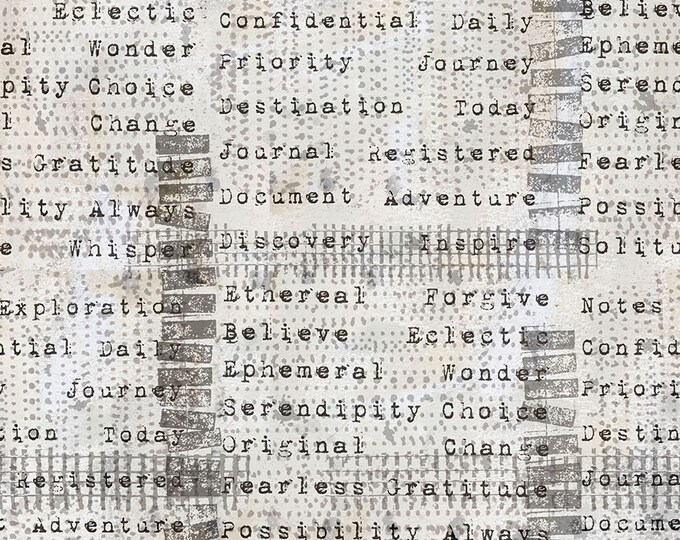 Eclectic
al Wonder
pity Choice
l Change
s Gratitude
lity Always
e Whisper
Exploration
ntial Daily
y Journey
tion Today
Registered
t Adventure
Confidential Daily
Priority Journey
Destination Today
Journal Registered
Document Adventure
Discovery Inspire
Ethereal Forgive
Believe Eclectic
Ephemeral Wonder
Serendipity Choice
Original Change
Fearless Gratitude
Possibility Always
Believe
Ephemer
Serend
Origin
Fearles
Possib
Solitu
Notes
Confid
Priori
Destin
Journa
Docume